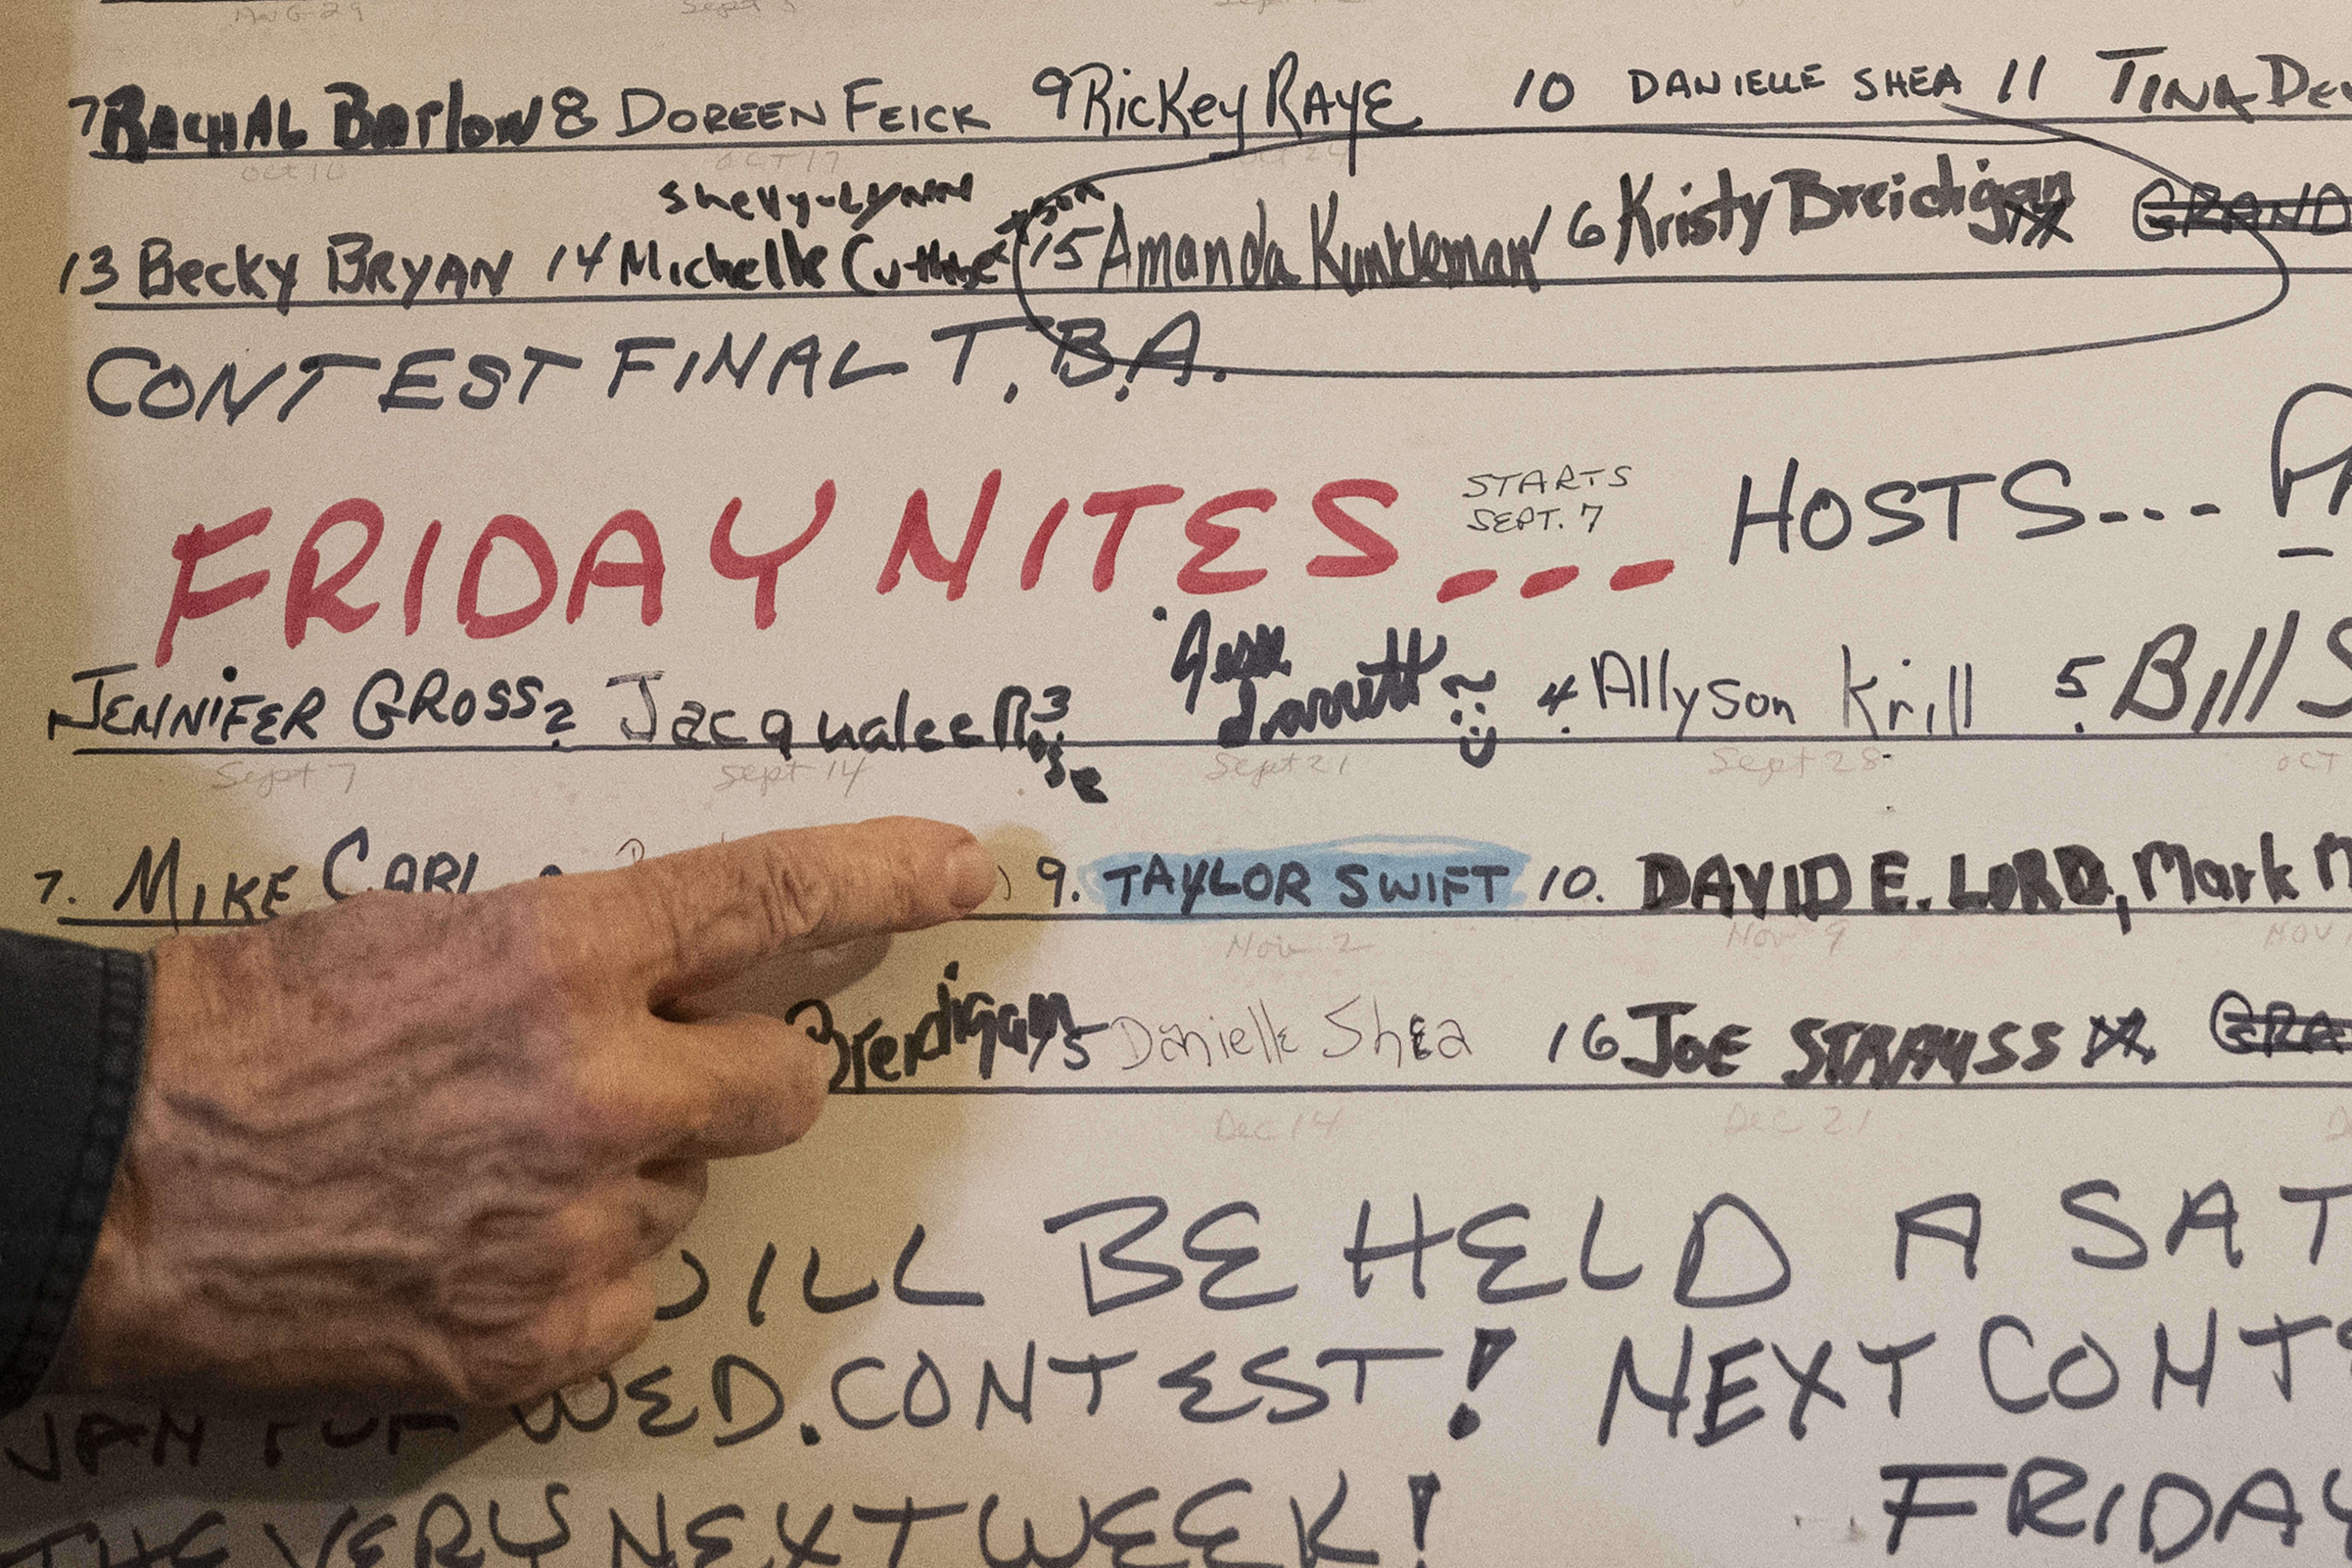 AUG 29 Sept 5
7 RACHAL BARlow 8 DOREEN FEICK 9 RicKey RAYE 10 DANIELLE SHEA 11 TINA
Oct 10 OCT 17 Oct 24
Shelly-LYNN
13 Becky BRYAN 14 Michelle 15 Amanda Kunkleman 16 Kristy Breidigan GRAND
CONTEST FINAL T.B.A.
FRIDAY NITES--- STARTS SEPT. 7 HOSTS---
JENNIFER GROSS 2 Jacqualee Rose 3 Jesse Garrett 4. Allyson Krill 5. Bill
Sept 7 Sept 14 Sept 21 Sept 28 OCT
7. MIKE CARL 9. TAYLOR SWIFT 10. DAVID E. LORD, Mark
Nov 2 Nov 9 NOV
Breidigan 15 Danielle Shea 16 JOE STRAUSS
Dec 14 Dec 21
WILL BE HELD A SAT
JAN FOR WED. CONTEST! NEXT
THE VERY NEXT WEEK! FRIDAY